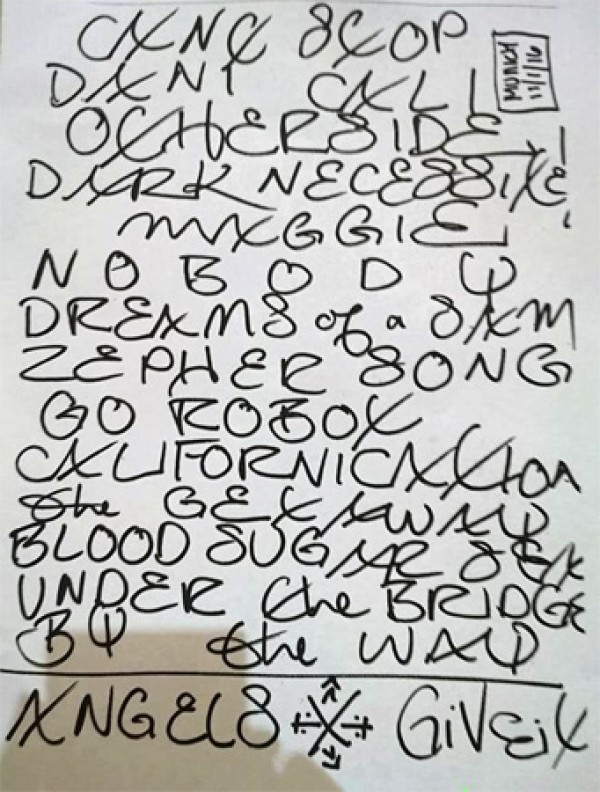 CANT STOP
DANI CALI
OTHERSIDE
DARK NECESSITIE
MAGGIE
NOBODY
DREAMS of a SAM
ZEPHER SONG
GO ROBOT
CALIFORNICATION
the GETAWAY
BLOOD SUGAR SEX
UNDER the BRIDGE
BY the WAY
ANGELS GiVEiT